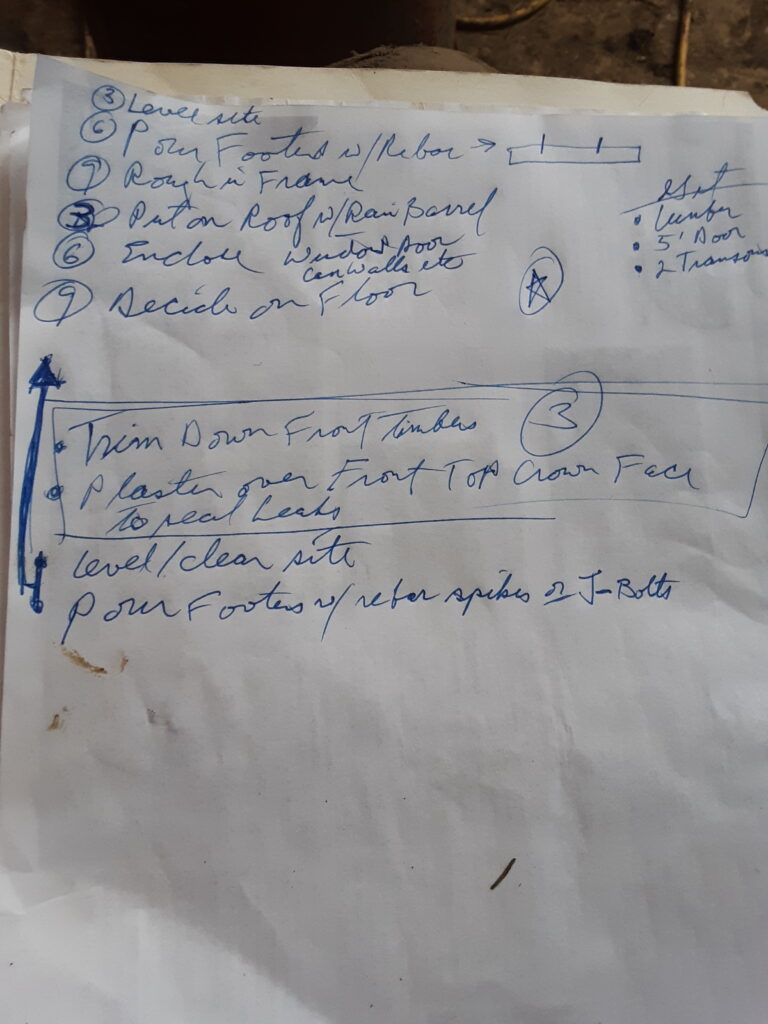 ③ Level site
⑥ Pour Footers w/Rebar →
⑨ Rough in Frame
Put on Roof w/Rain Barrel
⑥ Enclose Window Door
Can Walls etc
⑨ Decide on Floor
Get
• Lumber
• 5' Door
• 2 Transoms
③
• Trim Down Front timbers
• Plaster over Front Top Crown Face
to seal Leaks
Level/clear site
Pour Footers w/rebar spikes or J-Bolts